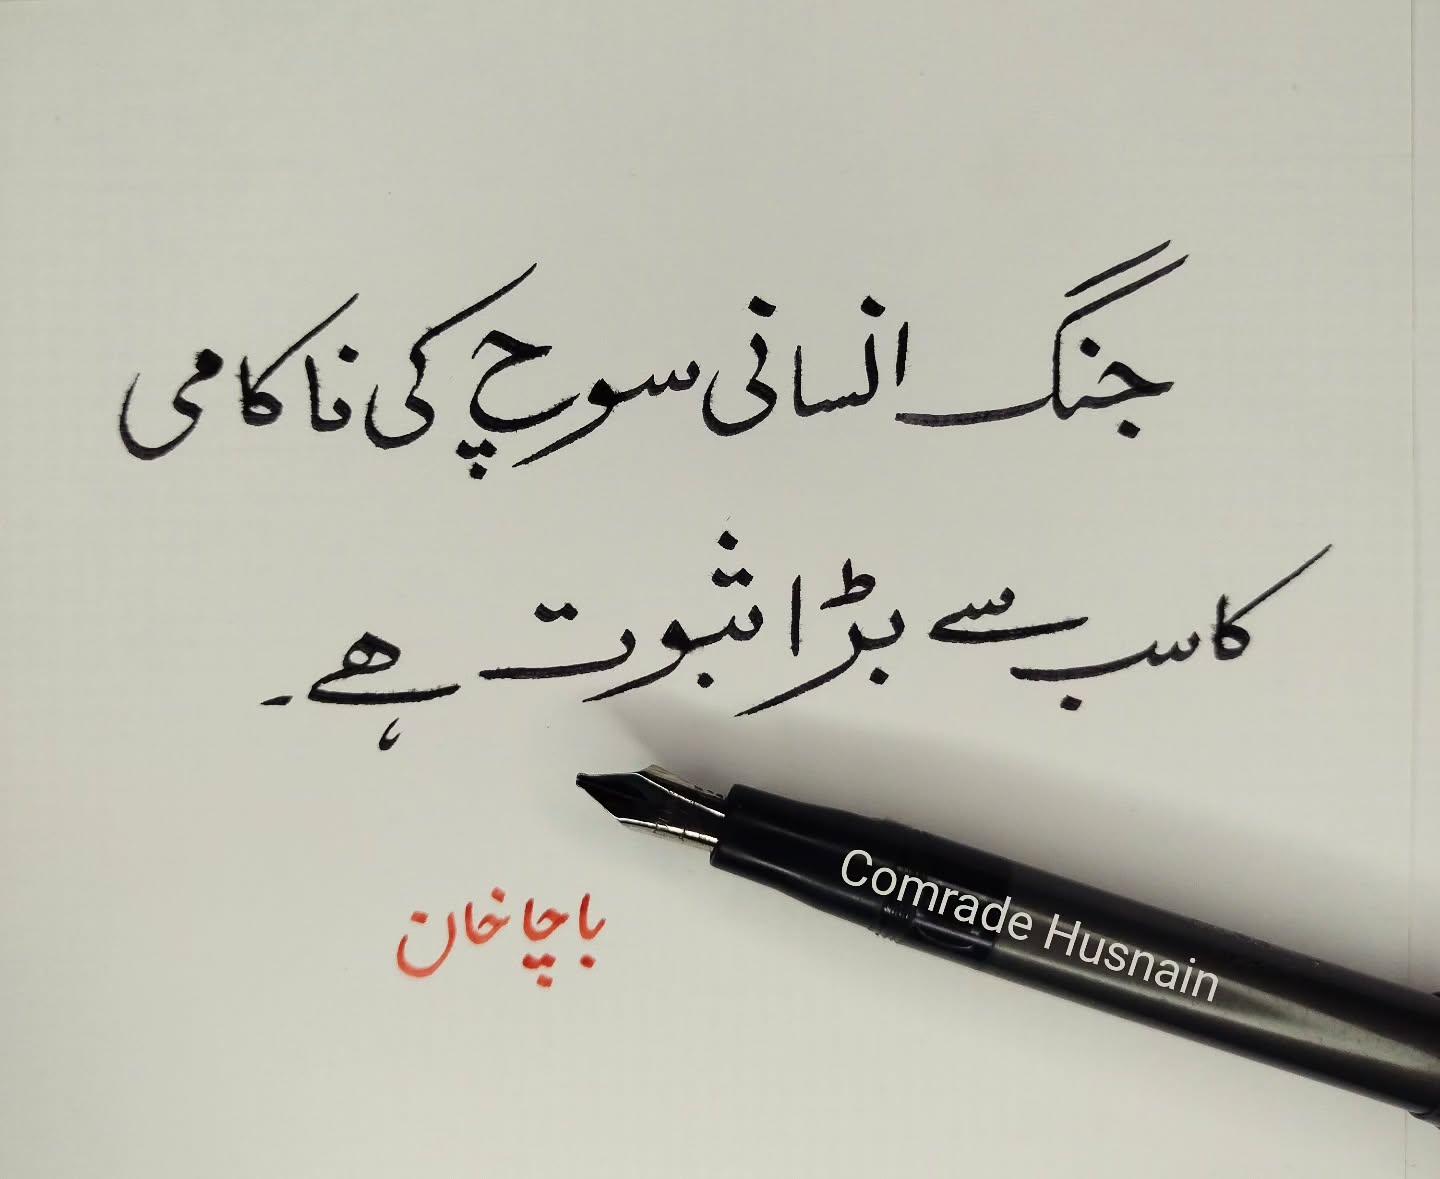 جنگ انسانی سوچ کی ناکامی
کا سب سے بڑا ثبوت ہے۔
باچا خان
Comrade Husnain